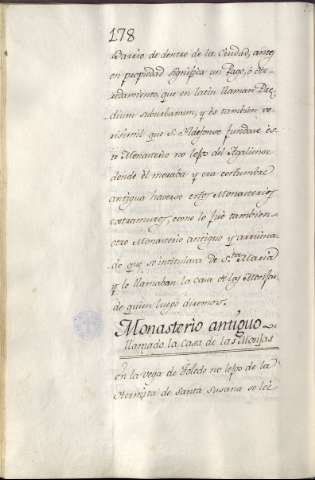 178
Varrio de dentro de la Ciudad, antes
en propiedad significa un Pago, ó ete-
redamiento, que en latin llaman Pre-
dium suburbanum, y és tambien ve-
risimil que Sn Ildefonso fundase es-
te Monasterio no lejos del Agaliense
donde él moraba y era costumbre
antigua hacerse estos Monasterios
extramuros, como lo fué tambien
otro Monasterio antiguo y arruina-
do que se intitulava de Sta Maria
y le llamaban la casa de las Monjas
de quien luego diremos.
Monasterio antiguo
llamado la Casa de las Monjas
en la vega de Toledo no lejos de la
Hermita de Santa Susana se lee